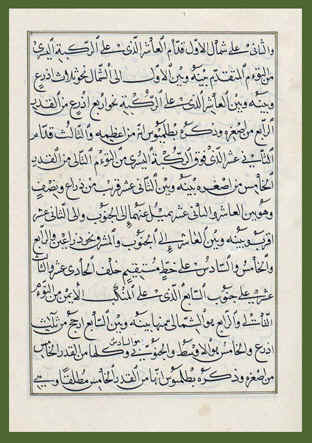 والثانى على شمال الاول قدام العاشر الذى على الركبة اليسرى
من التوءم المتقدم بينه وبين الاول الى الشمال نحو ثلاث اذرع
وبينه وبين العاشر الذى على الركبة نحو اربع اذرع من القدر
الرابع من اصغره وذكره بطلميوس انه من اعظمه والثالث قدام
الثانى عشر الذى فوق الركبة اليسرى من التوءم التالى من القدر
الخامس من اصغره بينه وبين الثانى عشر قريب من ذراع ونصف
وهو بين العاشر والثانى عشر يميل عنهما الى الجنوب والى الثانى عشر
اقرب وبينه وبين العاشر الى الجنوب والمشرق نحو ذراعين والرابع
والخامس والسادس على خط مستقيم خلف الحادى عشر والثالث
عشر على جنوب السابع الذى على المنكب الايمن من التوءم
الثانى والرابع هو الشمالى منها بينه وبين السابع ارجح من ثلث
اذرع والخامس هو الاوسط والسادس هو الجنوبى وكلها من القدر الخامس
من اصغره وذكره بطلميوس انها من القدر الخامس مطلقا ويسمى